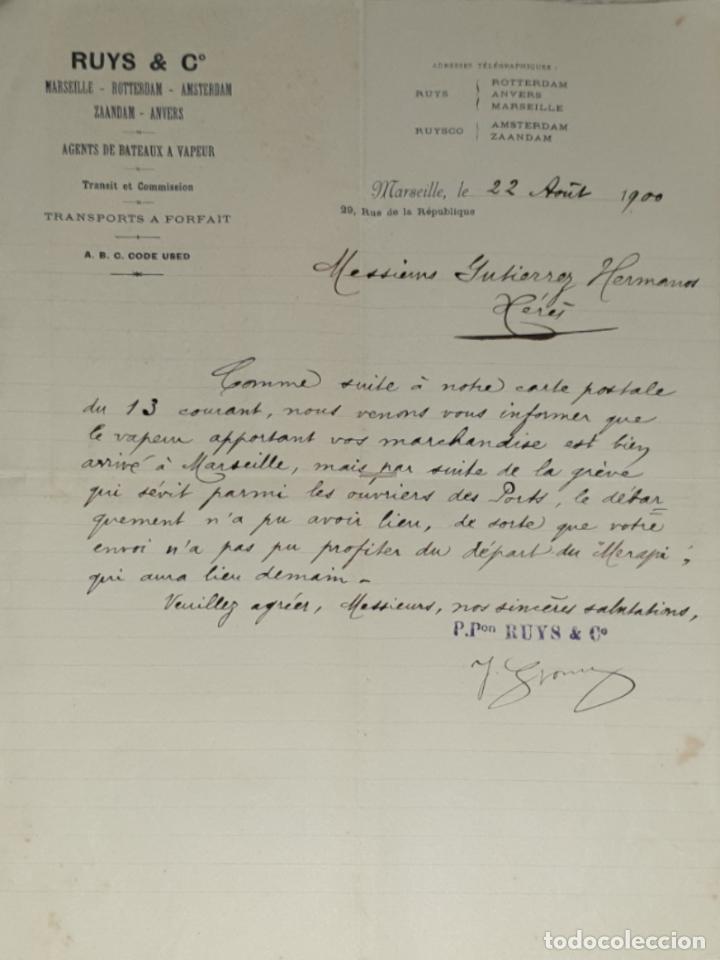 RUYS & Cº
MARSEILLE - ROTTERDAM - AMSTERDAM
ZAANDAM - ANVERS
AGENTS DE BATEAUX A VAPEUR
Transit et Commission
TRANSPORTS A FORFAIT
A. B. C. CODE USED
ADRESSES TÉLÉGRAPHIQUES :
RUYS ROTTERDAM
ANVERS
MARSEILLE
RUYSCO AMSTERDAM
ZAANDAM
Marseille, le 22 Août 1900
29, Rue de la République
Messieurs Gutierrez Hermanos
Xérès
Comme suite à notre carte postale
du 13 courant, nous venons vous informer que
le vapeur apportant vos marchandise est bien
arrivé à Marseille, mais par suite de la grève
qui sévit parmi les ouvriers des Ports, le débar
quement n'a pu avoir lieu, de sorte que votre
envoi n'a pas pu profiter du départ du "Merapi",
qui aura lieu demain.
Veuillez agréer, Messieurs, nos sincères salutations,
P.Pon RUYS & Cº
todocoleccion